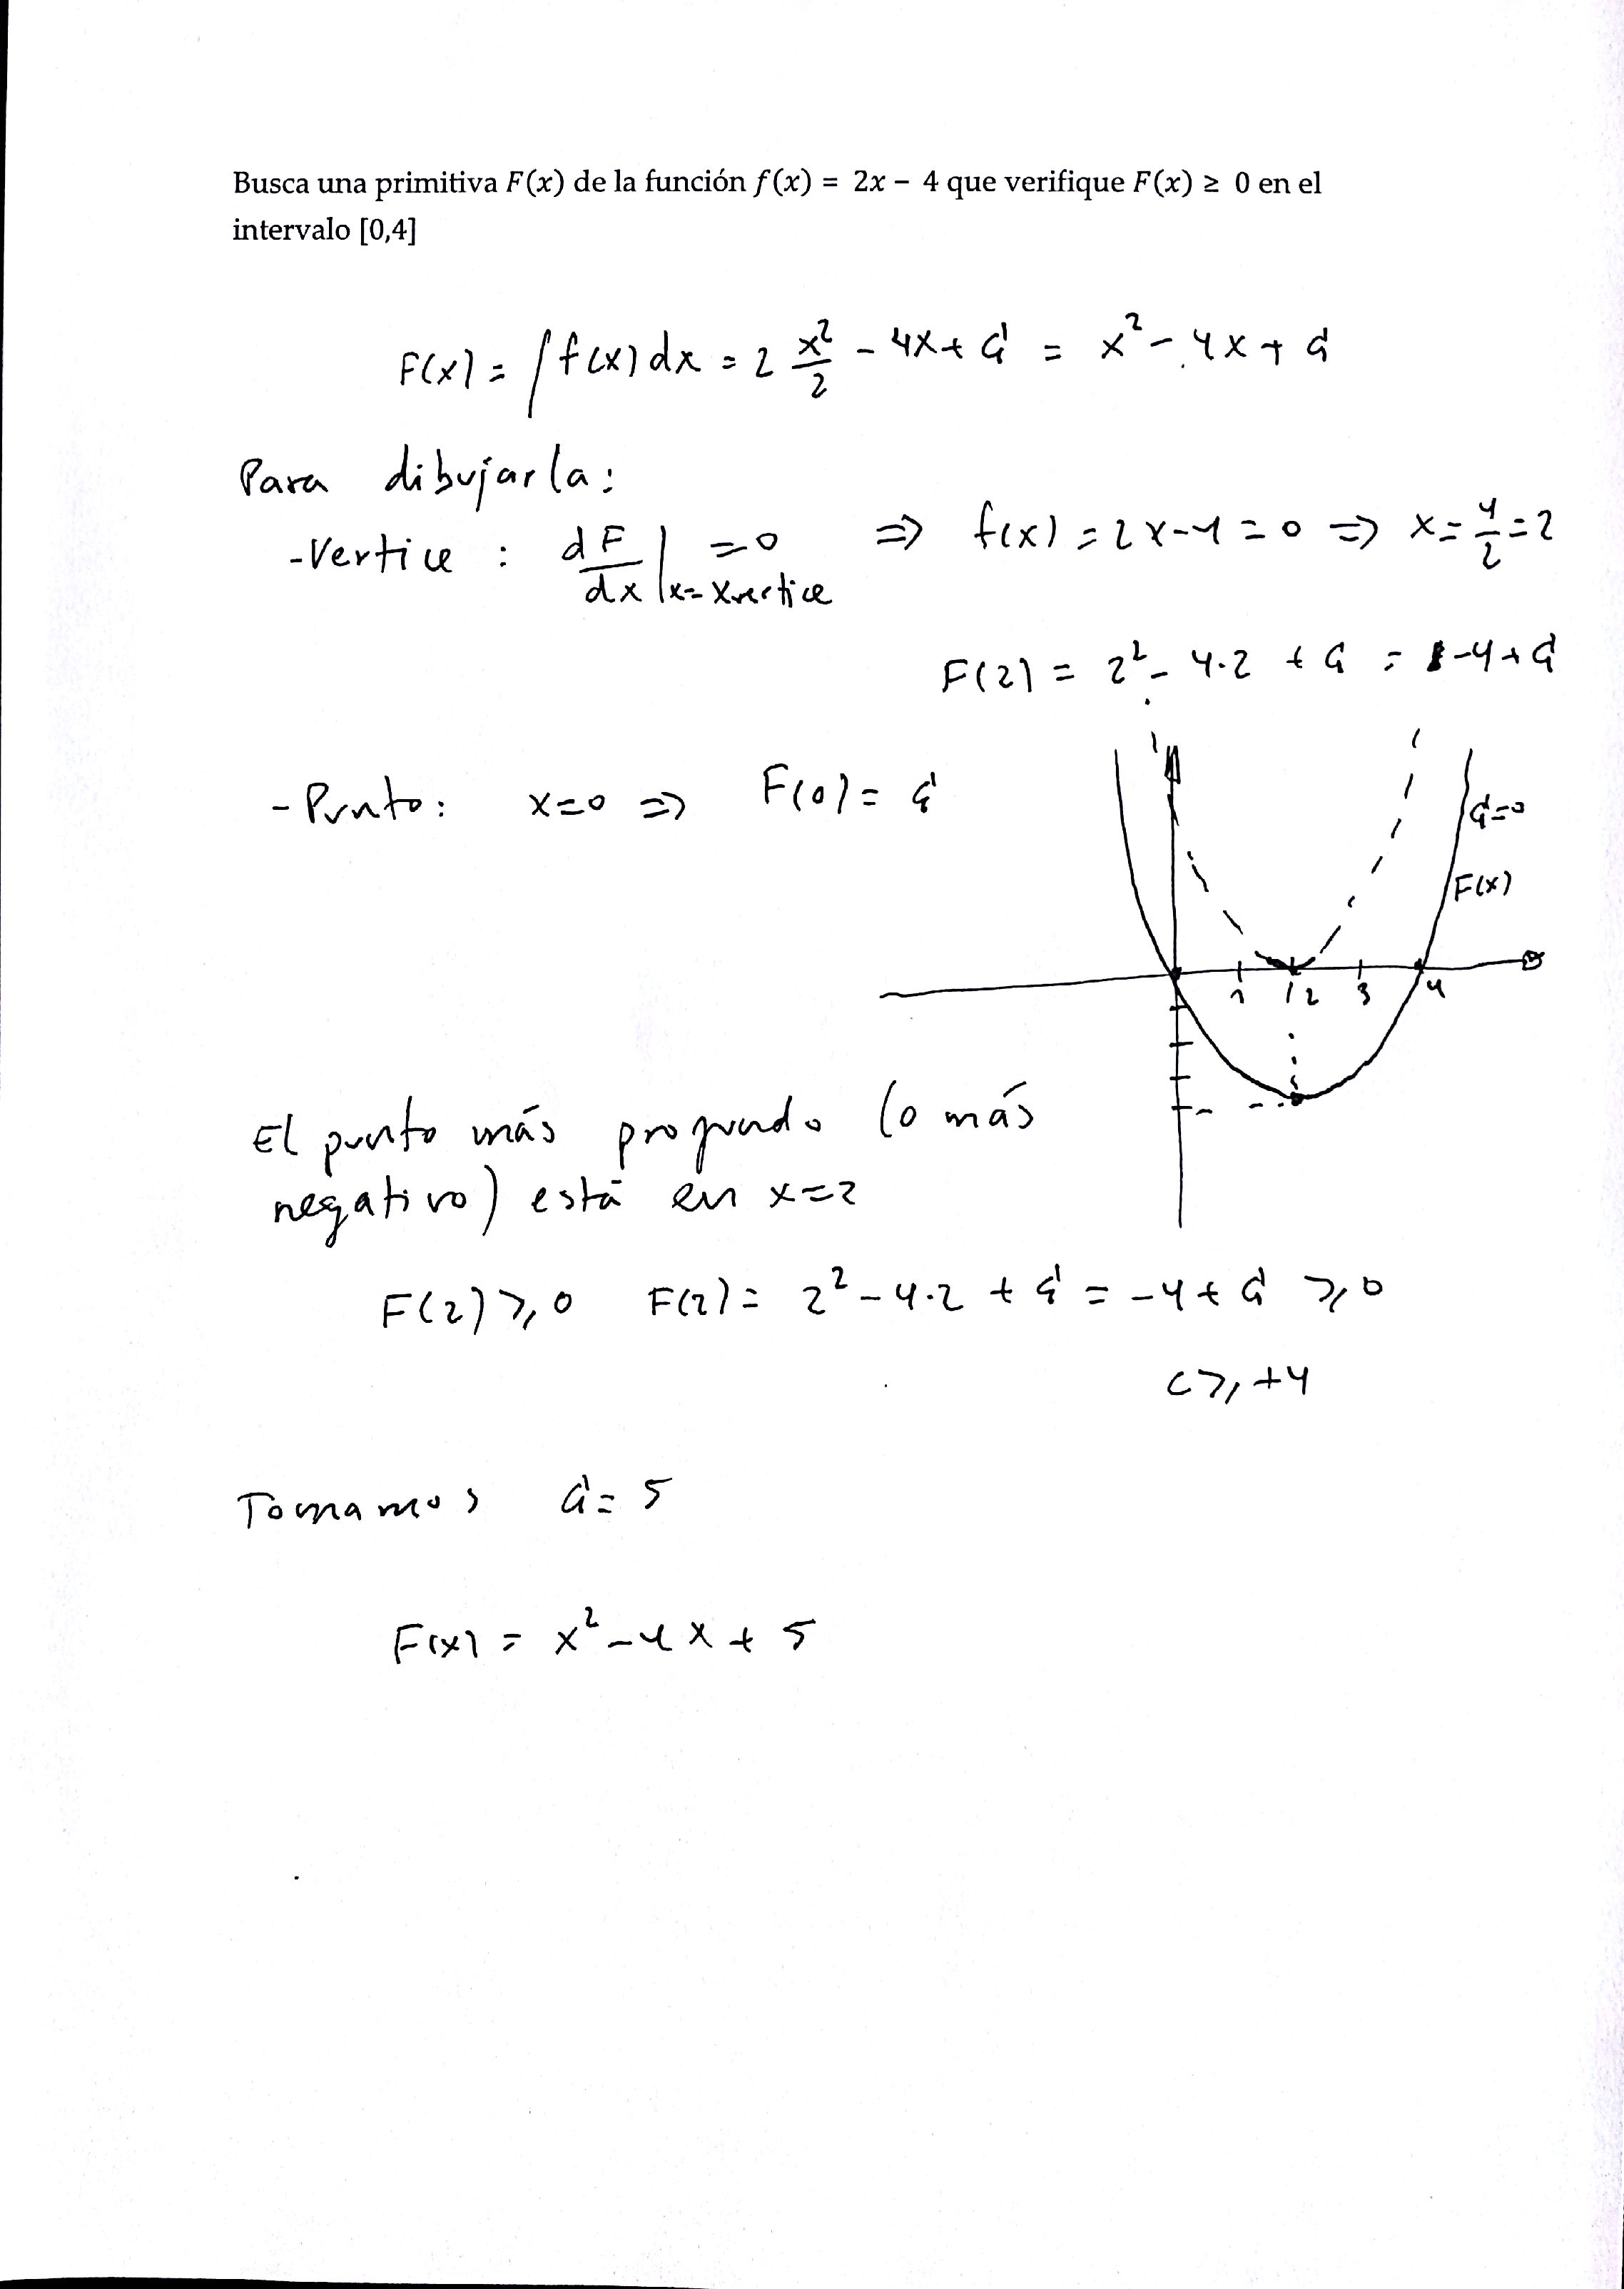 Busca una primitiva F(x) de la función f(x) = 2x − 4 que verifique F(x) ≥ 0 en el
intervalo [0,4]
F(x) = ∫ f(x) dx = 2 x²/2 − 4x + C = x² − 4x + C
Para dibujarla:
- Vertice : dF/dx |x = xvertice = 0 ⇒ f(x) = 2x − 4 = 0 ⇒ x = 4/2 = 2
F(2) = 2² − 4·2 + C = −4 + C
- Punto: x = 0 ⇒ F(0) = C
C = 0
F(x)
1 2 3 4
El punto más profundo (o más
negativo) está en x = 2
F(2) ≥ 0 F(2) = 2² − 4·2 + C = −4 + C ≥ 0
C ≥ +4
Tomamos C = 5
F(x) = x² − 4x + 5